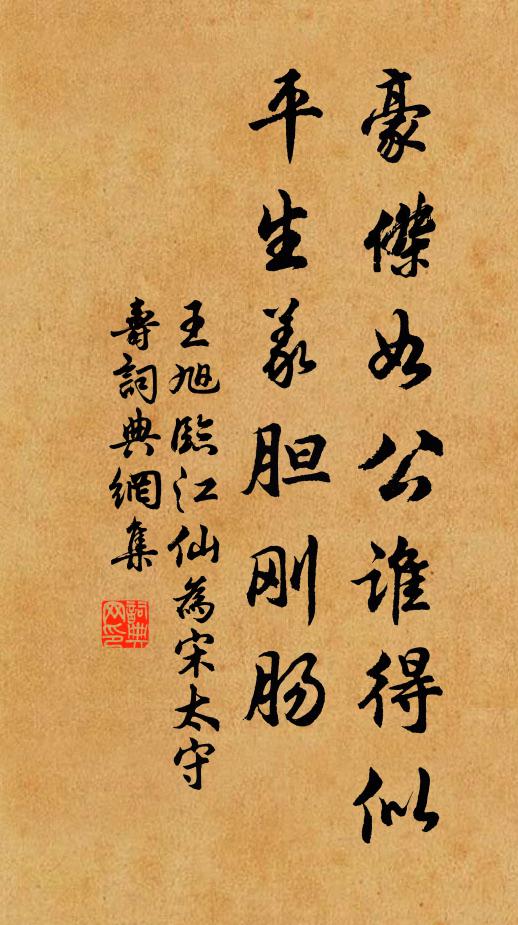 豪傑如公谁得似
平生義胆刚肠
王旭臨江仙為宋太守
壽詞典網集
詞典网印